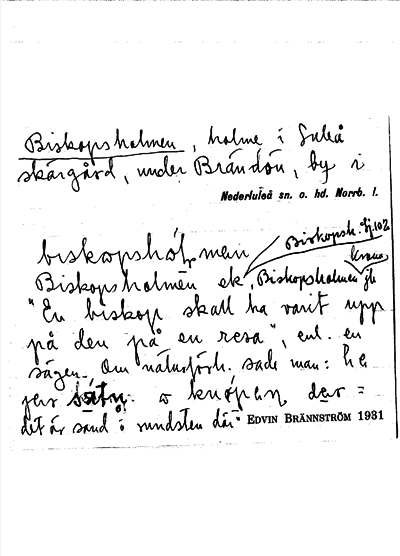 Biskopsholmen, holme i Luleå
skärgård, under Brändön, by i
Nederluleå sn. o. hd. Norrb. l.
Biskopsh. Ej. 102
biskopshólman
krona
Biskopsholmen ek, Biskopsholmen jb
"En biskop skall ha varit upp
på den på en resa", enl. en
sägen. Om naturförh. sade man: he
jer i knópan där =
det är sand i rundsten där
EDVIN BRÄNNSTRÖM 1931